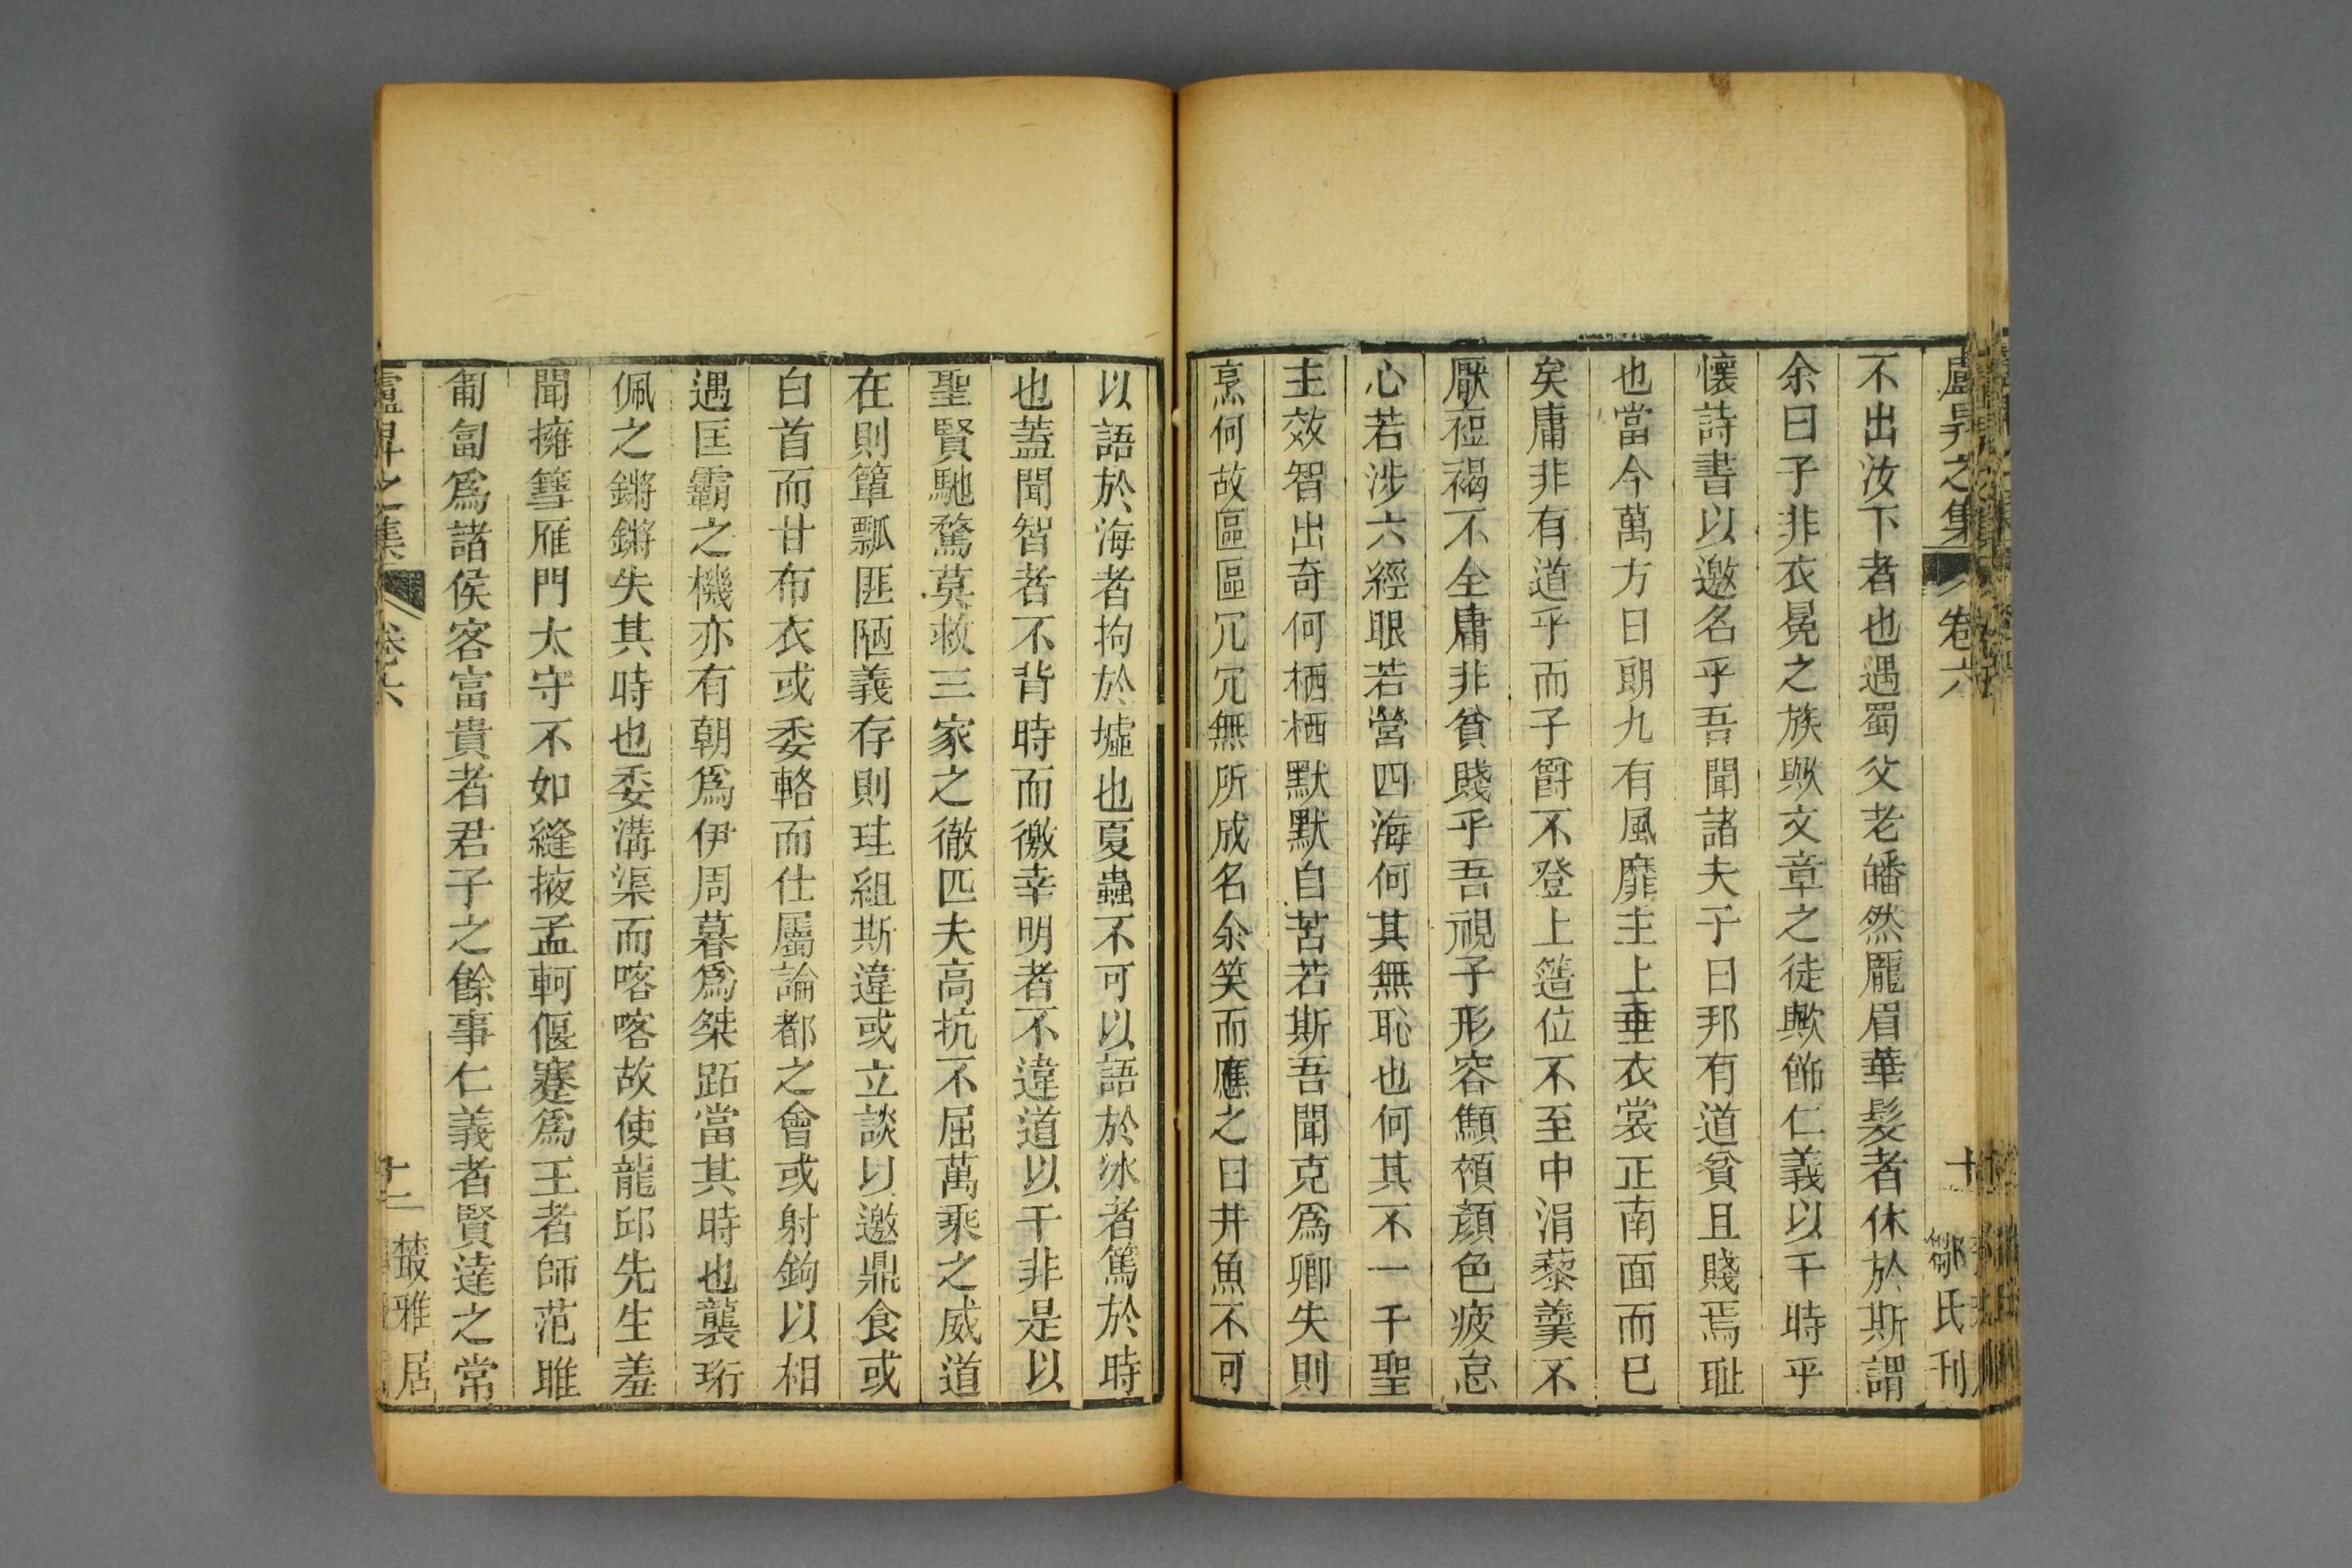 盧昇之集 卷六 十 鄒氏刊
不出汝下者也遇蜀父老皤然龐眉華髮者休於斯謂
余曰子非衣冕之族歟文章之徒歟飾仁義以干時乎
懷詩書以邀名乎吾聞諸夫子曰邦有道貧且賤焉耻
也當今萬方日朗九有風靡主上垂衣裳正南面而已
矣庸非有道乎而子爵不登上簉位不至中涓藜羹不
厭裋褐不全庸非貧賤乎吾視子形容顦顇顏色疲怠
心若涉六經眼若營四海何其無恥也何其不一干聖
主效智出奇何栖栖默默自苦若斯吾聞克爲卿失則
烹何故區區冗冗無所成名余笑而應之曰井魚不可
以語於海者拘於墟也夏蟲不可以語於冰者篤於時
也蓋聞智者不背時而徼幸明者不違道以干非是以
聖賢馳騖莫救三家之徹匹夫高抗不屈萬乘之威道
在則簞瓢匪陋義存則珪組斯違或立談以邀鼎食或
白首而甘布衣或委輅而仕屬論都之會或射鉤以相
遇匡霸之機亦有朝爲伊周暮爲桀跖當其時也襲珩
佩之鏘鏘失其時也委溝渠而喀喀故使龍邱先生羞
聞擁篲雁門太守不如縫掖孟軻偃蹇爲王者師范雎
匍匐爲諸侯客富貴者君子之餘事仁義者賢達之常
盧昇之集 卷六 十一 叢雅居